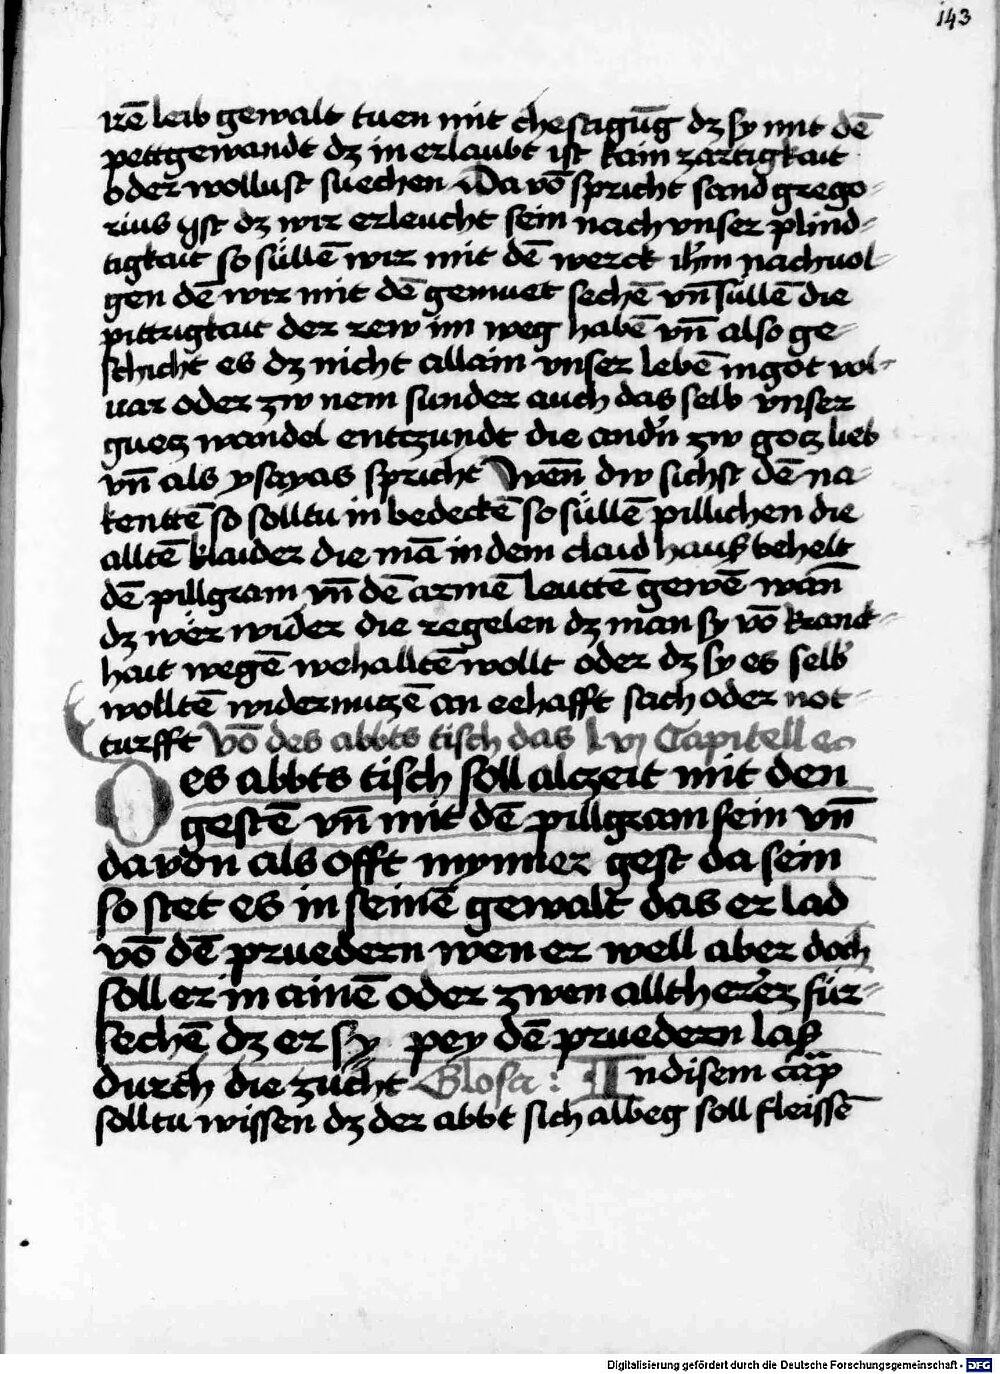 143
irē leib gewalt tuen mit chestigūg dz sy mit dē
pettgewandt dz in erlaubt ist kain zartigkait
oder wollust suechen Da vō spricht sand grego-
rius Ist dz wir erleucht sein nach vnser plind-
tigkait so süllē wir mit dē werck ihm nachuol-
gen dē wir mit dē gemuet sechē vn̄ süllē die
pittrigkait der rew im weg habē vn̄ also ge-
schicht es dz nicht allain vnser lebē in got vol-
uar oder zw nem sunder auch das selb vnser
guetz wandel entczundt die andn̄ zw gotz lieb
vn̄ als ysayas spricht Wen̄ dw sichst dē na-
kenttē so solltu in bedeckē so süllē pillichen die
alltē klaider die mā in dem claid haus behelt
dē pillgram vn̄ dē armē leuttē gewē wan̄
dz wër wider die regelen dz man sy vō kranck-
hait wegē wehalltē wollt oder dz sy es selb
wolltē widernuczē an eehafft sach oder not-
turfft Vō des abbts tisch das lvj Capitell
Des abbts tisch soll alczeit mit den
gestē vn̄ mit dē pillgram sein vn̄
davon als offt mynner gest da sein
so stet es in seinē gewalt das er lad
vō dē pruedern wen er well aber doch
soll er in ainē oder zwen allth erer für-
sechē dz er sy pey dē pruedern las
durch die zucht Glosa: In disem cap
solltu wissen dz der abbt sich albeg soll fleissē
Digitalisierung gefördert durch die Deutsche Forschungsgemeinschaft - DFG